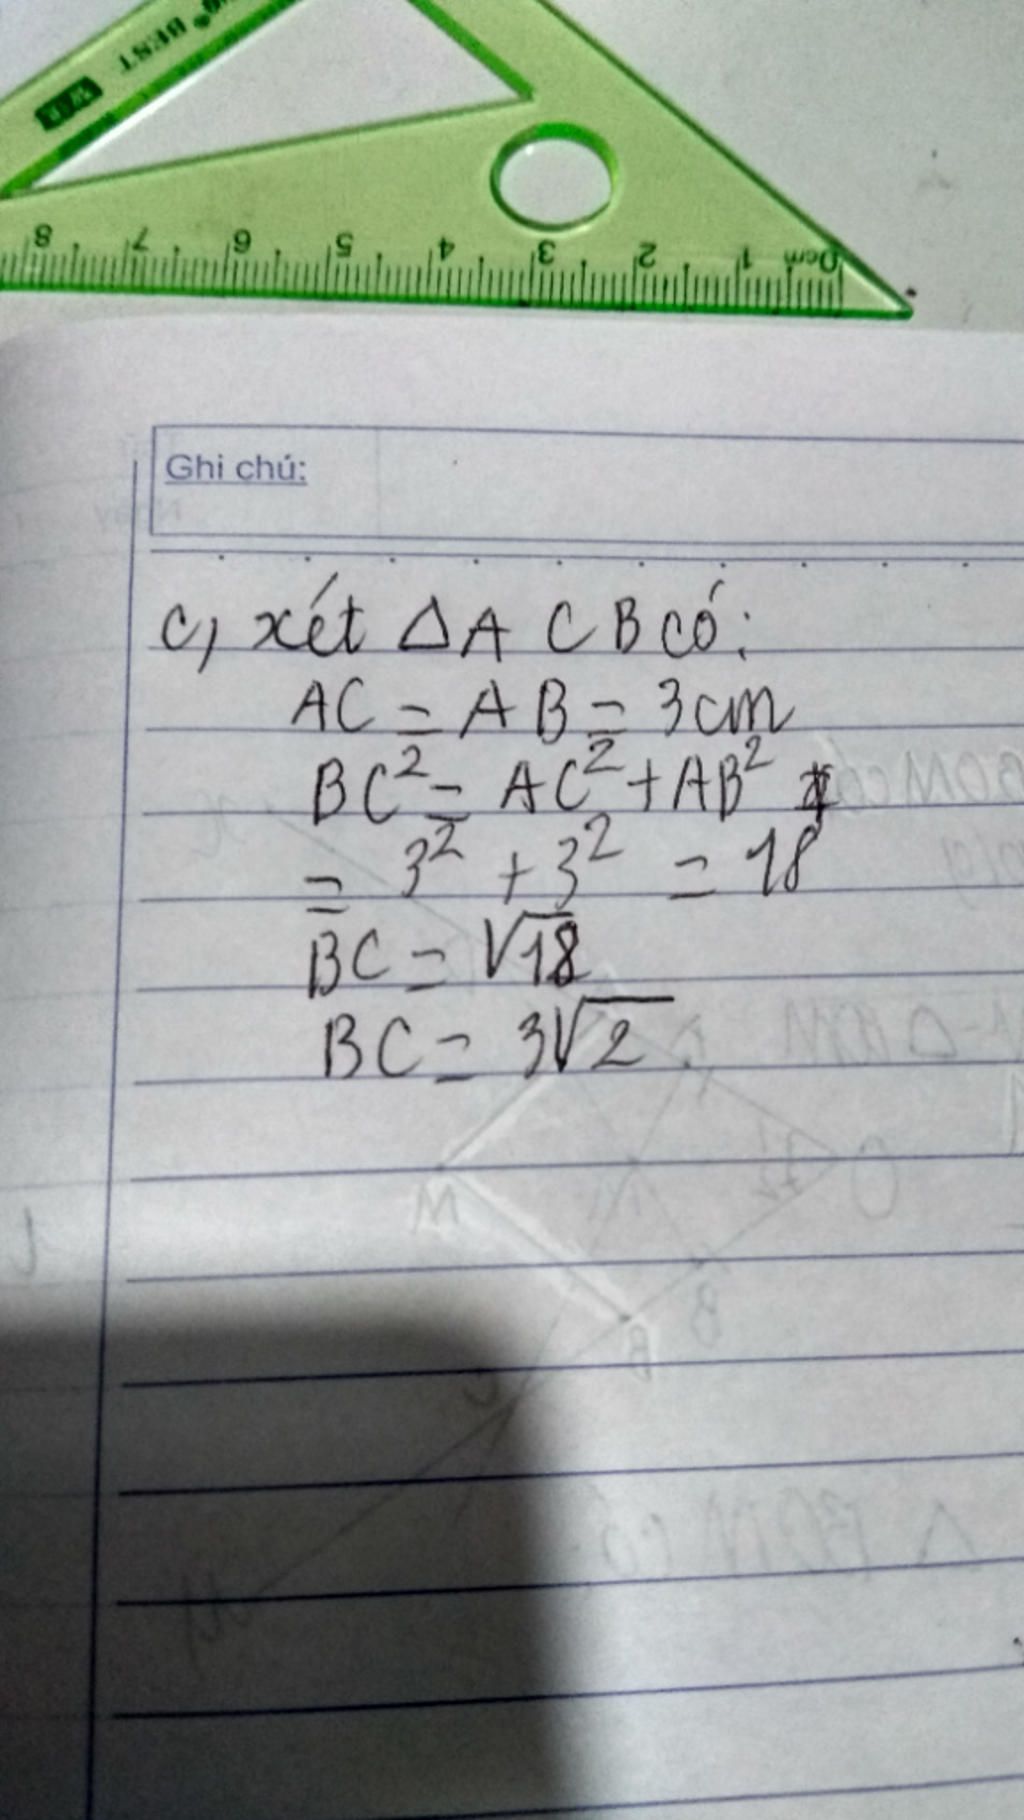 BEST
WinQ
8 7 6 5 4 3 2 1 0cm
Ghi chú:
c, xét △ A C B có:
AC = AB = 3cm
BC² = AC² + AB²
= 3² + 3² = 18
BC = √18
BC = 3√2